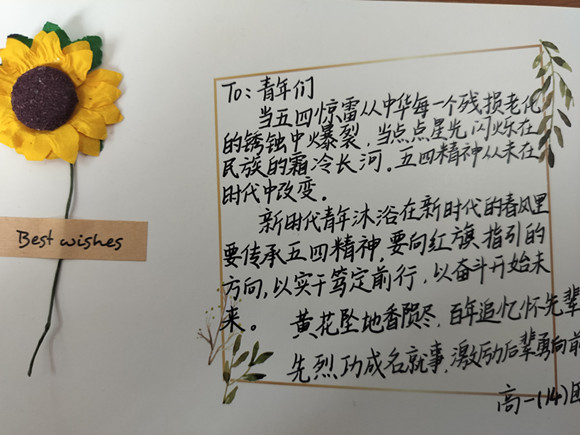 Best wishes
To: 青年们
当五四惊雷从中华每一个残损老化
的锈蚀中爆裂，当点点星光闪烁在
民族的霜冷长河。五四精神从未在
时代中改变。
新时代青年沐浴在新时代的春风里
要传承五四精神，要向红旗指引的
方向，以实干笃定前行，以奋斗开始未
来。
黄花坠地香陨尽，百年追忆怀先辈
先烈功成名就事，激励后辈勇向前
高一(14)团